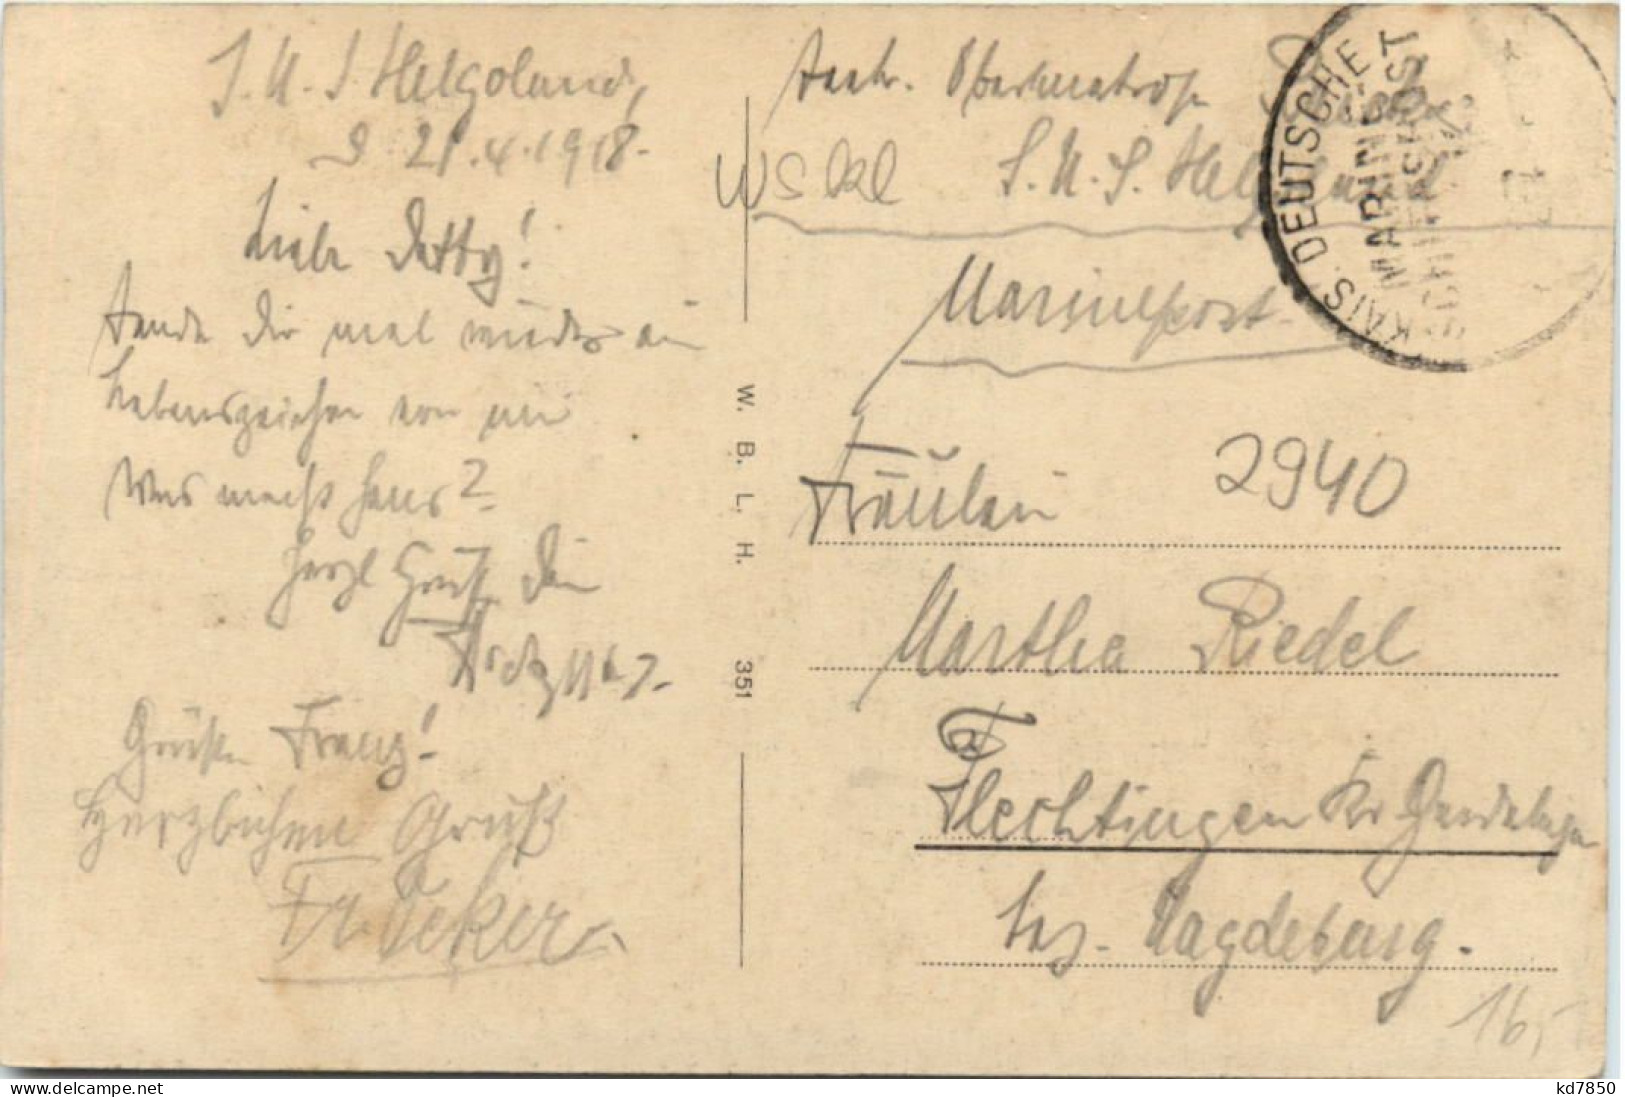 S.M.S Helgoland,
d 21.4.1918.
Liebe Detty!
Sende Dir mal wieder ein
Lebenszeichen von mir
Was macht Hans?
Herzl Gruß Dein
Grüße Franz!
Herzlichen Gruß
Fr. Deker
W. B. L. H. 351
Obermatrose
S.M.S. Helgoland
Marinepost
KAIS. DEUTSCHE
MARINE
SCHIFFSPOST
Fräulein
2940
Martha Riedel
Flechtingen Kr Gardelegen
Bez. Magdeburg.
16,
delcampe.net
kd7850